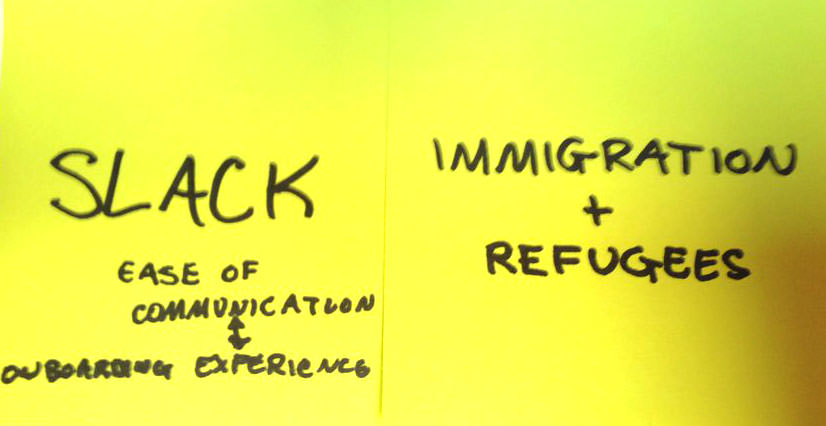 SLACK
EASE OF
COMMUNICATION
↕
ONBOARDING EXPERIENCE
IMMIGRATION
+
REFUGEES